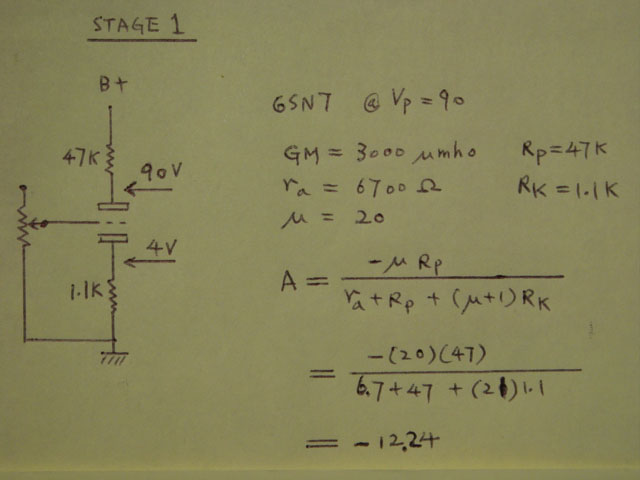 STAGE 1
B+
47K
90V
4V
1.1K
6SN7 @ Vp = 90
GM = 3000 μmho Rp = 47K
ra = 6700 Ω RK = 1.1K
μ = 20
A = -μ Rp / ra + Rp + (μ+1) RK
= -(20)(47) / 6.7 + 47 + (21) 1.1
= -12.24